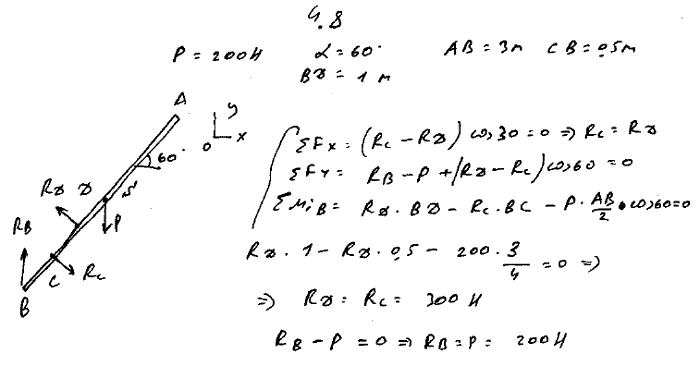 4.8
P = 200H α = 60° AB = 3м CB = 0,5м
BD = 1 м
A
y
x
0
60°
ΣFx = (Rc - RD) cos 30 = 0 => Rc = RD
ΣFy = RB - P + (RD - Rc) cos 60 = 0
ΣMiB = RD · BD - Rc · BC - P · AB/2 · cos 60 = 0
RD D S
RB P
C Rc
B
RD · 1 - RD · 0,5 - 200 · 3/4 = 0 =>
=> RD = Rc = 300 H
RB - P = 0 => RB = P = 200H